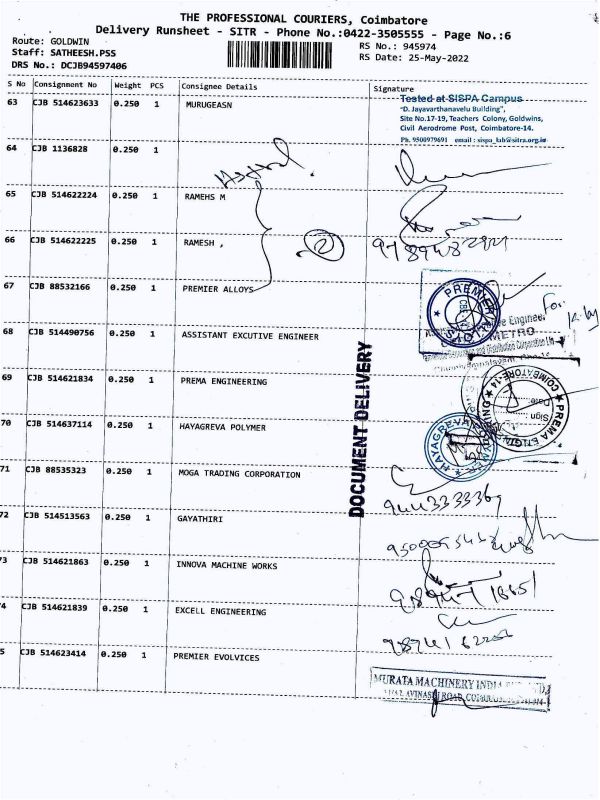 THE PROFESSIONAL COURIERS, Coimbatore
Delivery Runsheet - SITR - Phone No.:0422-3505555 - Page No.:6
Route: GOLDWIN
RS No.: 945974
Staff: SATHEESH.PSS
RS Date: 25-May-2022
DRS No.: DCJB94597406
S No Consignment No Weight PCS Consignee Details Signature
63 CJB 514623633 0.250 1 MURUGEASN
Tested at SISPA Campus
"D. Jayavarthanavelu Building",
Site No.17-19, Teachers Colony, Goldwins,
Civil Aerodrome Post, Coimbatore-14.
Ph. 9500979691 email : sispa_lab@sitra.org.in
64 CJB 1136828 0.250 1
65 CJB 514622224 0.250 1 RAMEHS M
66 CJB 514622225 0.250 1 RAMESH ,
2
67 CJB 88532166 0.250 1 PREMIER ALLOYS
PREMIER
For
68 CJB 514490756 0.250 1 ASSISTANT EXCUTIVE ENGINEER
Engineer
METRO
69 CJB 514621834 0.250 1 PREMA ENGINEERING
PREMA ENGINEERING
COIMBATORE-14
Date
Sign
70 CJB 514637114 0.250 1 HAYAGREVA POLYMER
HAYAGREVA
DOCUMENT DELIVERY
71 CJB 88535323 0.250 1 MOGA TRADING CORPORATION
72 CJB 514513563 0.250 1 GAYATHIRI
73 CJB 514621863 0.250 1 INNOVA MACHINE WORKS
74 CJB 514621839 0.250 1 EXCELL ENGINEERING
5 CJB 514623414 0.250 1 PREMIER EVOLVICES
MURATA MACHINERY INDIA
AVINASHI ROAD, COIMBATORE